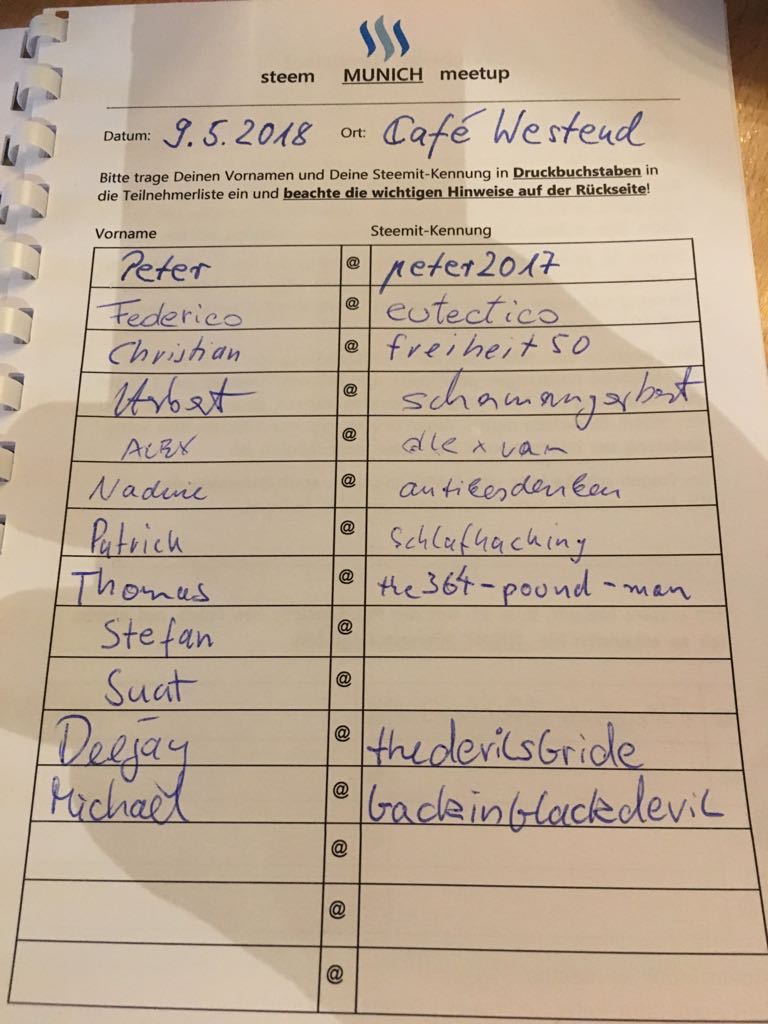 steem MUNICH meetup
Datum: 9.5.2018 Ort: Café Westend
Bitte trage Deinen Vornamen und Deine Steemit-Kennung in Druckbuchstaben in
die Teilnehmerliste ein und beachte die wichtigen Hinweise auf der Rückseite!
Vorname Steemit-Kennung
Peter @ peter2017
Federico @ eutectico
Christian @ freiheit50
@ schamangerbert
ALEX @ alexvan
Nadine @ antikesdenken
Patrick @ schlafhacking
Thomas @ the364-pound-man
Stefan @
Suat @
Deejay @ thedevilsbride
Michael @ backinblackdevil
@
@
@